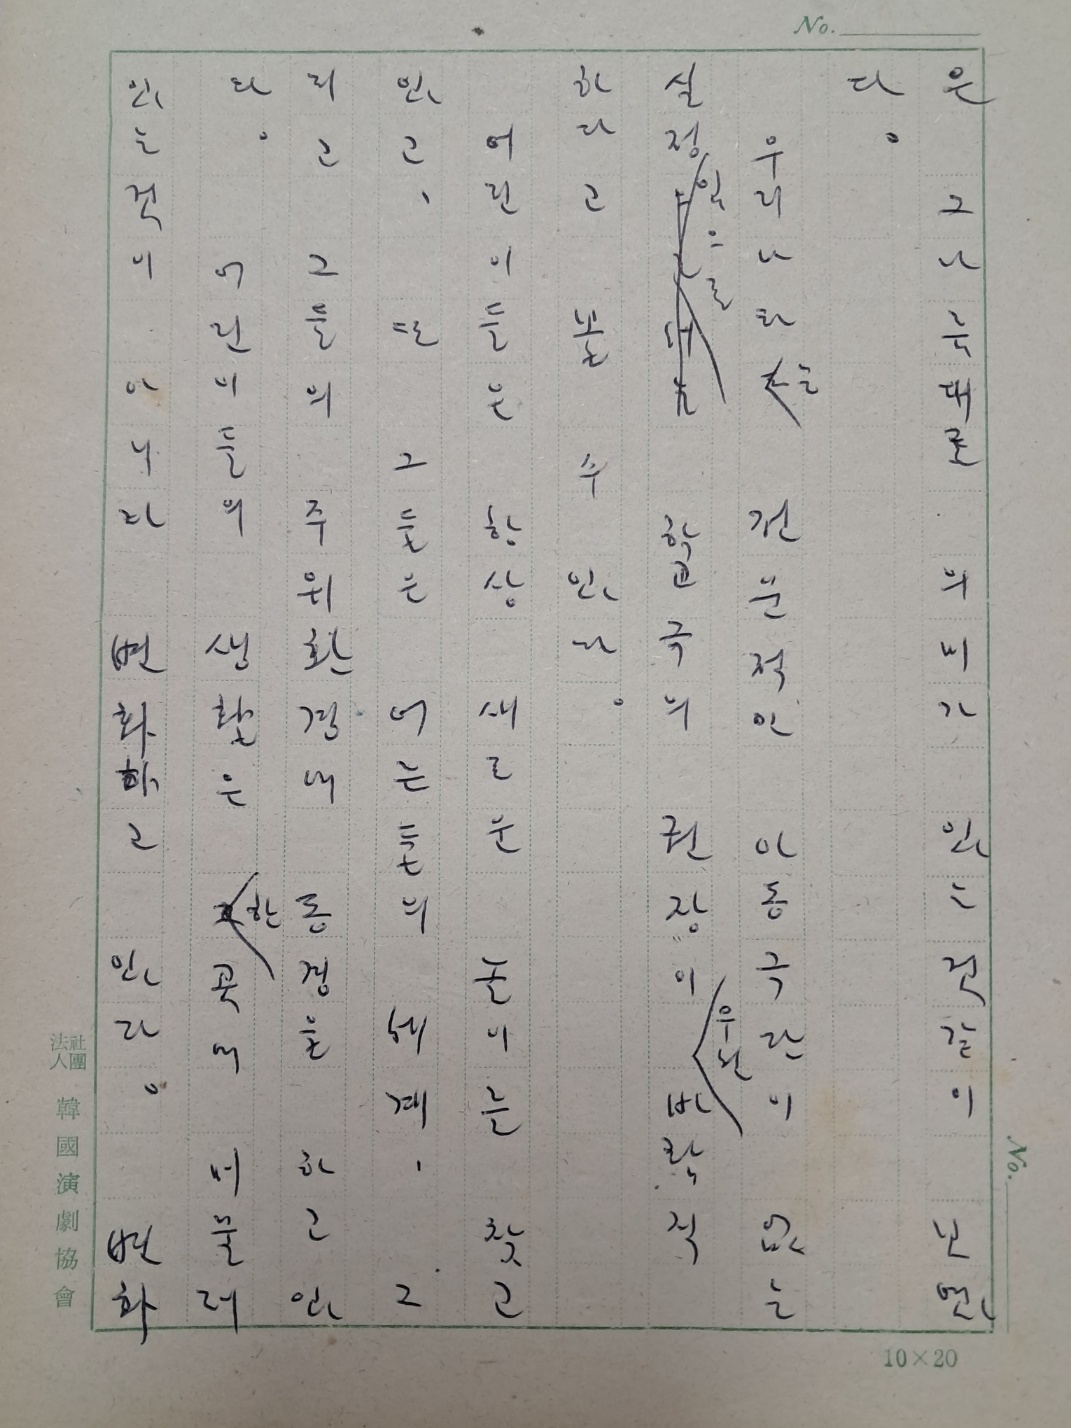 No.
은 그나름대로 의미가 있는 것같이 보였
다.
우리나라는 전문적인 아동극단이 없는
실정임으로 학교극의 권장이 우선 바람직
하다고 볼 수 있다.
어린이들은 항상 새로운 놀이를 찾고
있고, 또 그들은 어른들의 세계, 그
리고 그들의 주위환경에 동경을 하고 있
다. 어린이들의 생활은 한 곳에 머물러
있는것이 아니라 변화하고 있다. 변화
No.
10×20
社團法人 韓國演劇協會